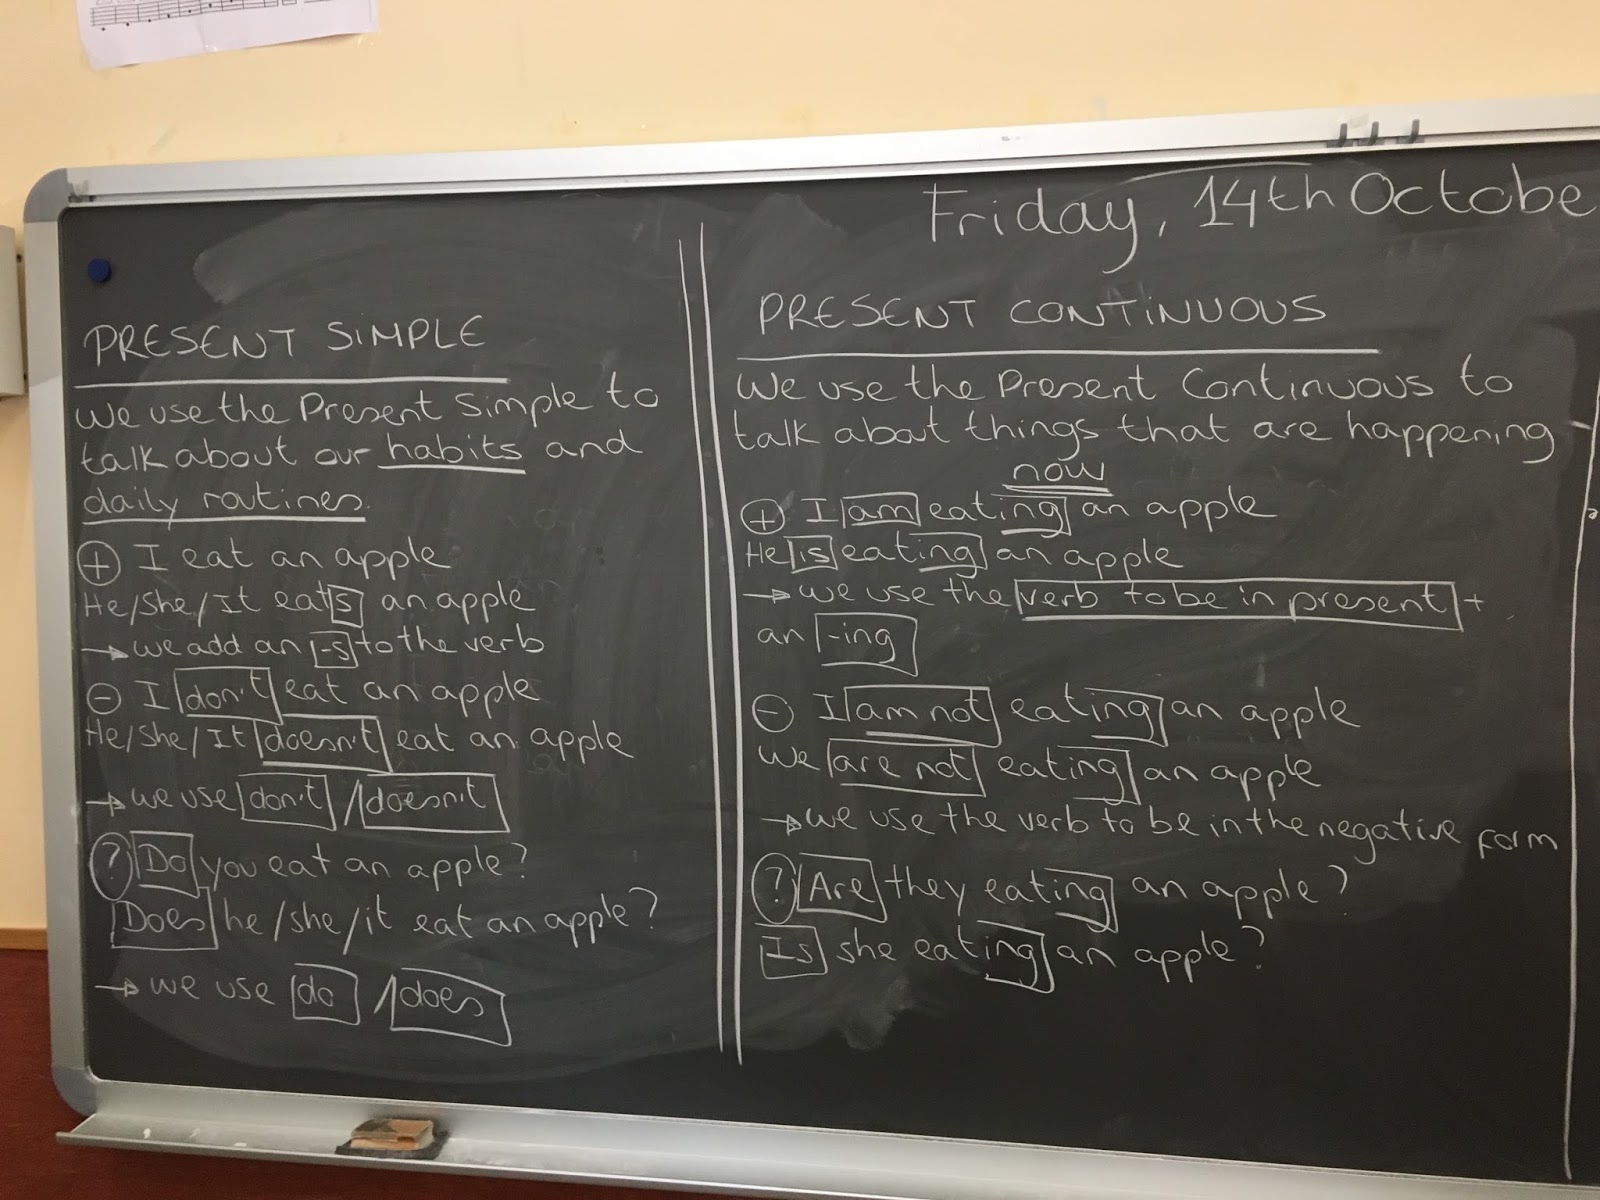 Friday, 14th Octobe
PRESENT SIMPLE
We use the Present Simple to
talk about our habits and
daily routines.
+ I eat an apple
He/She/It eats an apple
→ we add an -s to the verb
- I don't eat an apple
He/She/It doesn't eat an apple
→ we use don't / doesn't
? Do you eat an apple?
Does he/she/it eat an apple?
→ we use do / does
PRESENT CONTINUOUS
We use the Present Continuous to
talk about things that are happening
now
+ I am eating an apple
He is eating an apple
→ we use the verb to be in present +
an -ing
- I am not eating an apple
We are not eating an apple
→ we use the verb to be in the negative form
? Are they eating an apple?
Is she eating an apple?